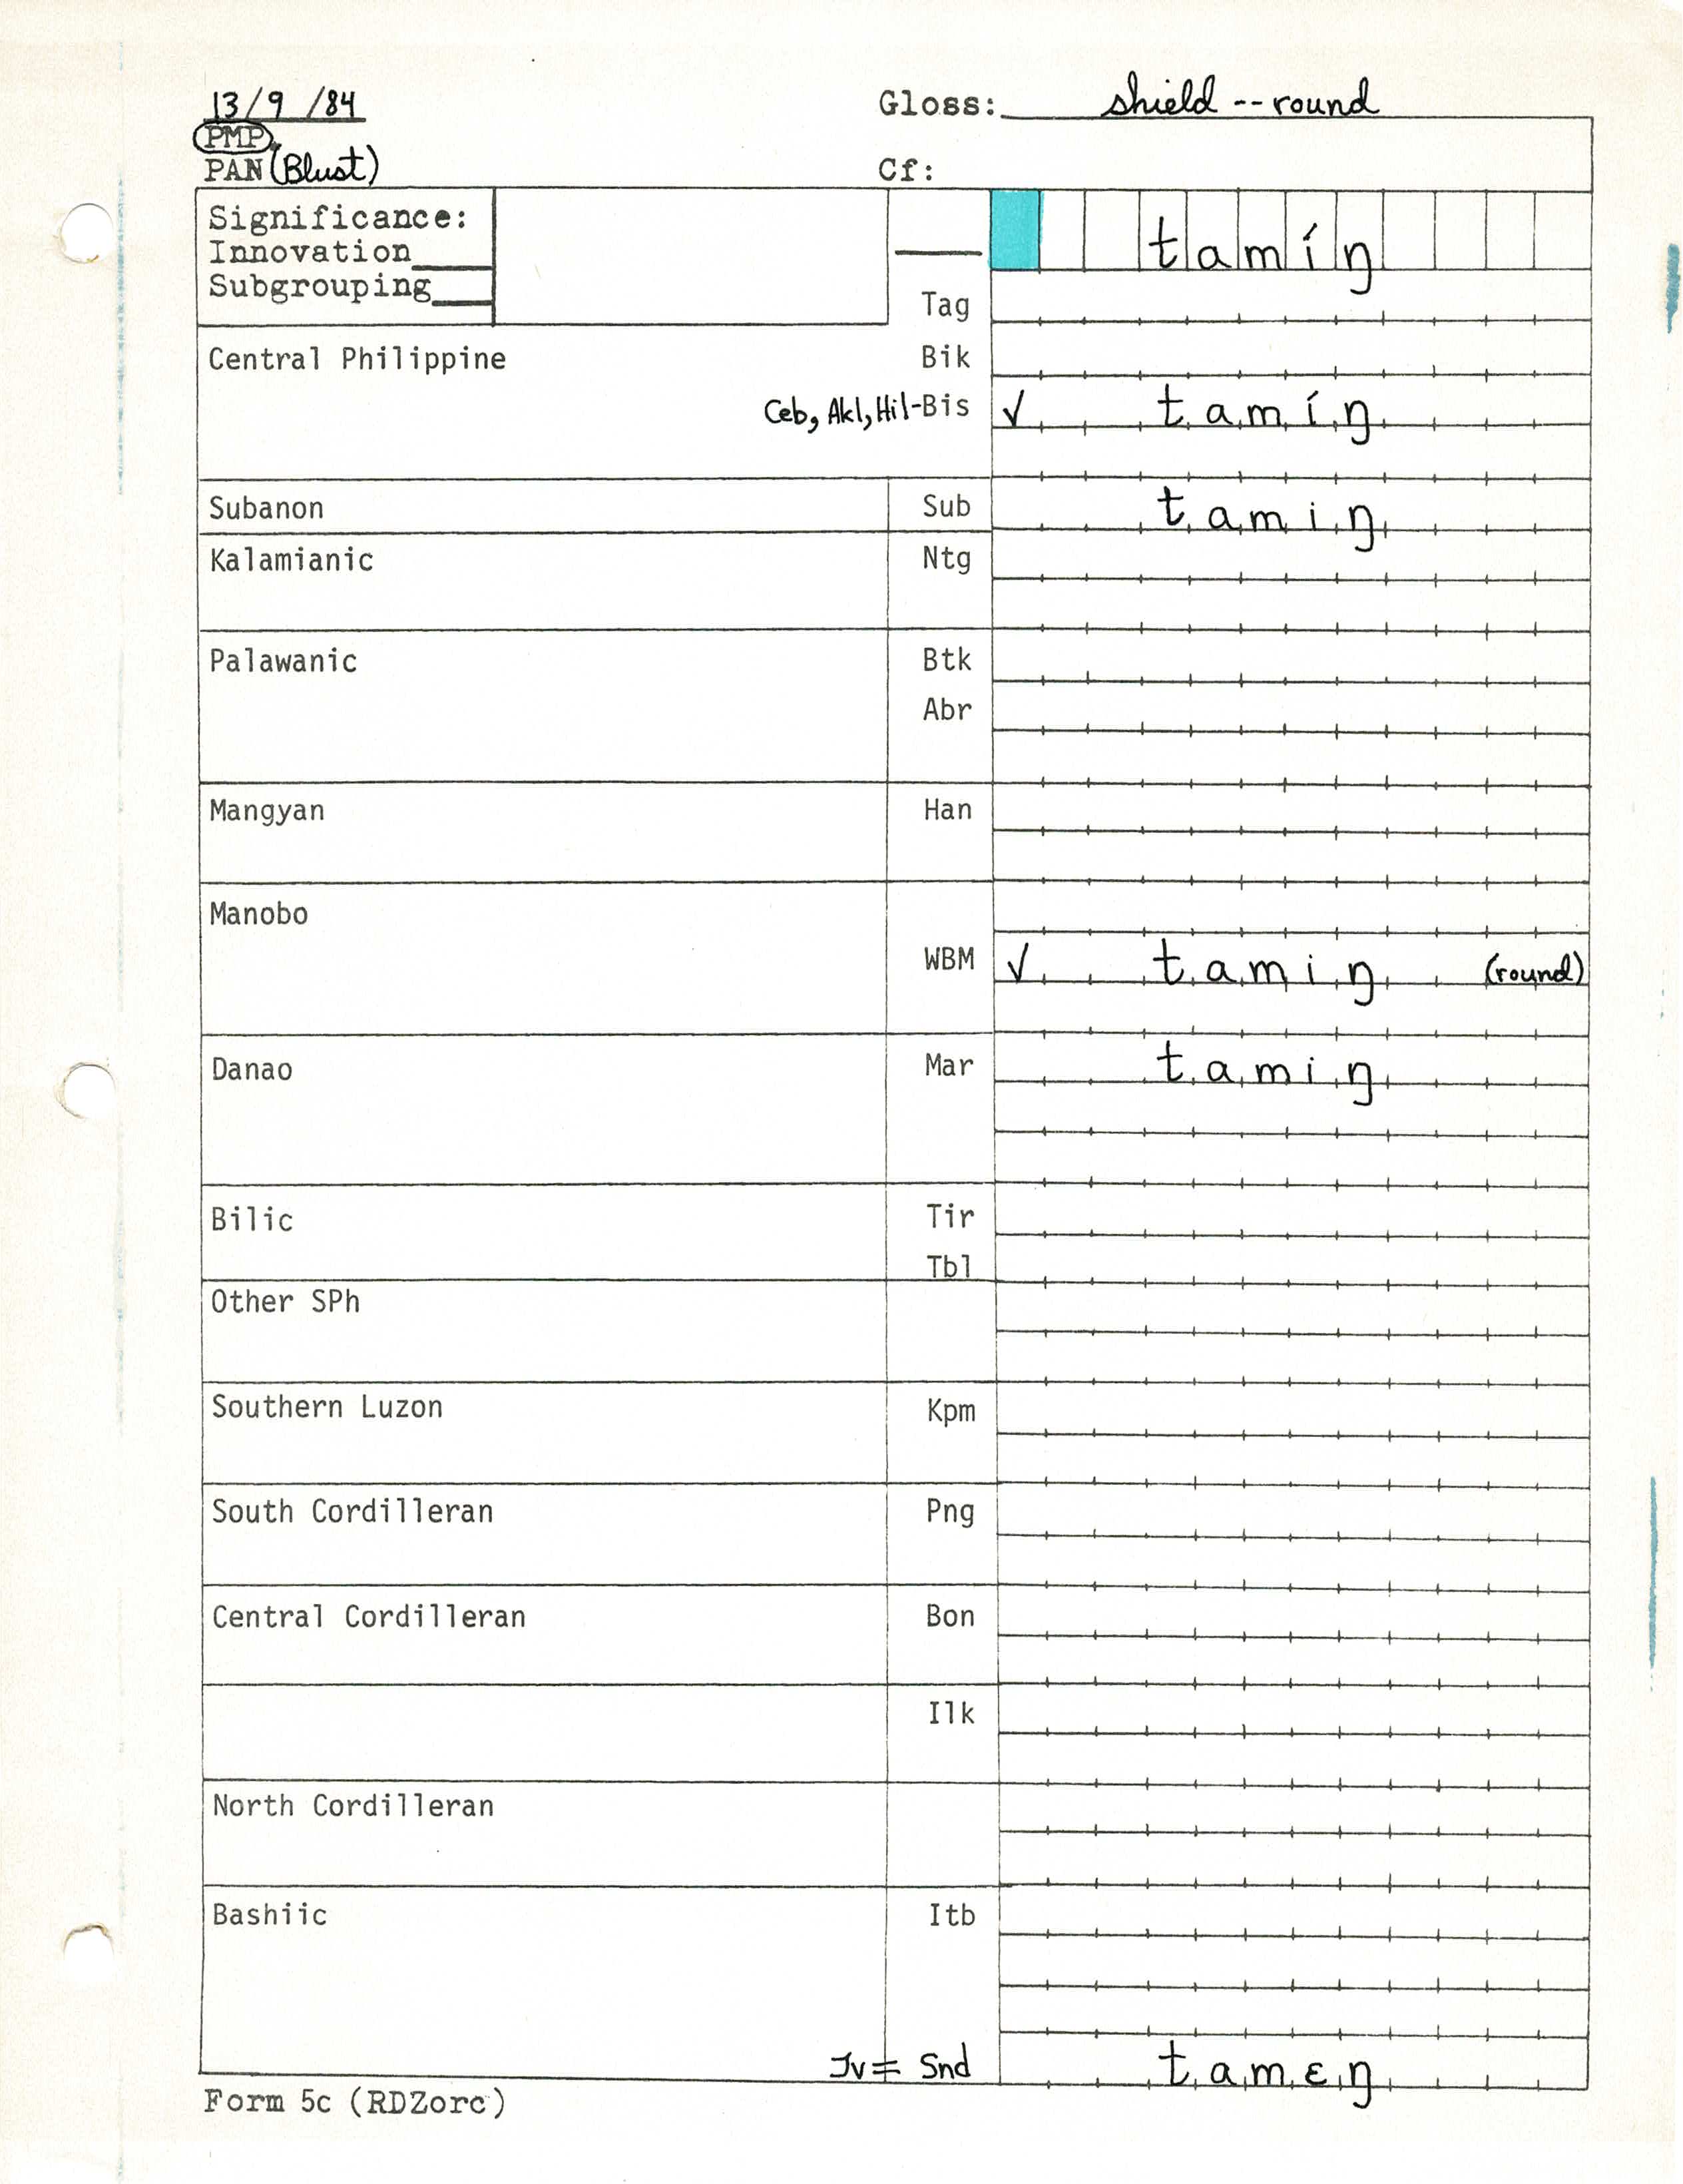 13/9/84 Gloss: shield -- round
PMP
PAN (Blust) Cf:
Significance:
Innovation____
Subgrouping___
____ tamíŋ
Tag
Central Philippine Bik
Ceb, Akl, Hil-Bis ✓ tamíŋ
Subanon Sub tamiŋ
Kalamianic Ntg
Palawanic Btk
Abr
Mangyan Han
Manobo
WBM ✓ tamiŋ (round)
Danao Mar tamiŋ
Bilic Tir
Tbl
Other SPh
Southern Luzon Kpm
South Cordilleran Png
Central Cordilleran Bon
Ilk
North Cordilleran
Bashiic Itb
Jv = Snd tamɛŋ
Form 5c (RDZorc)